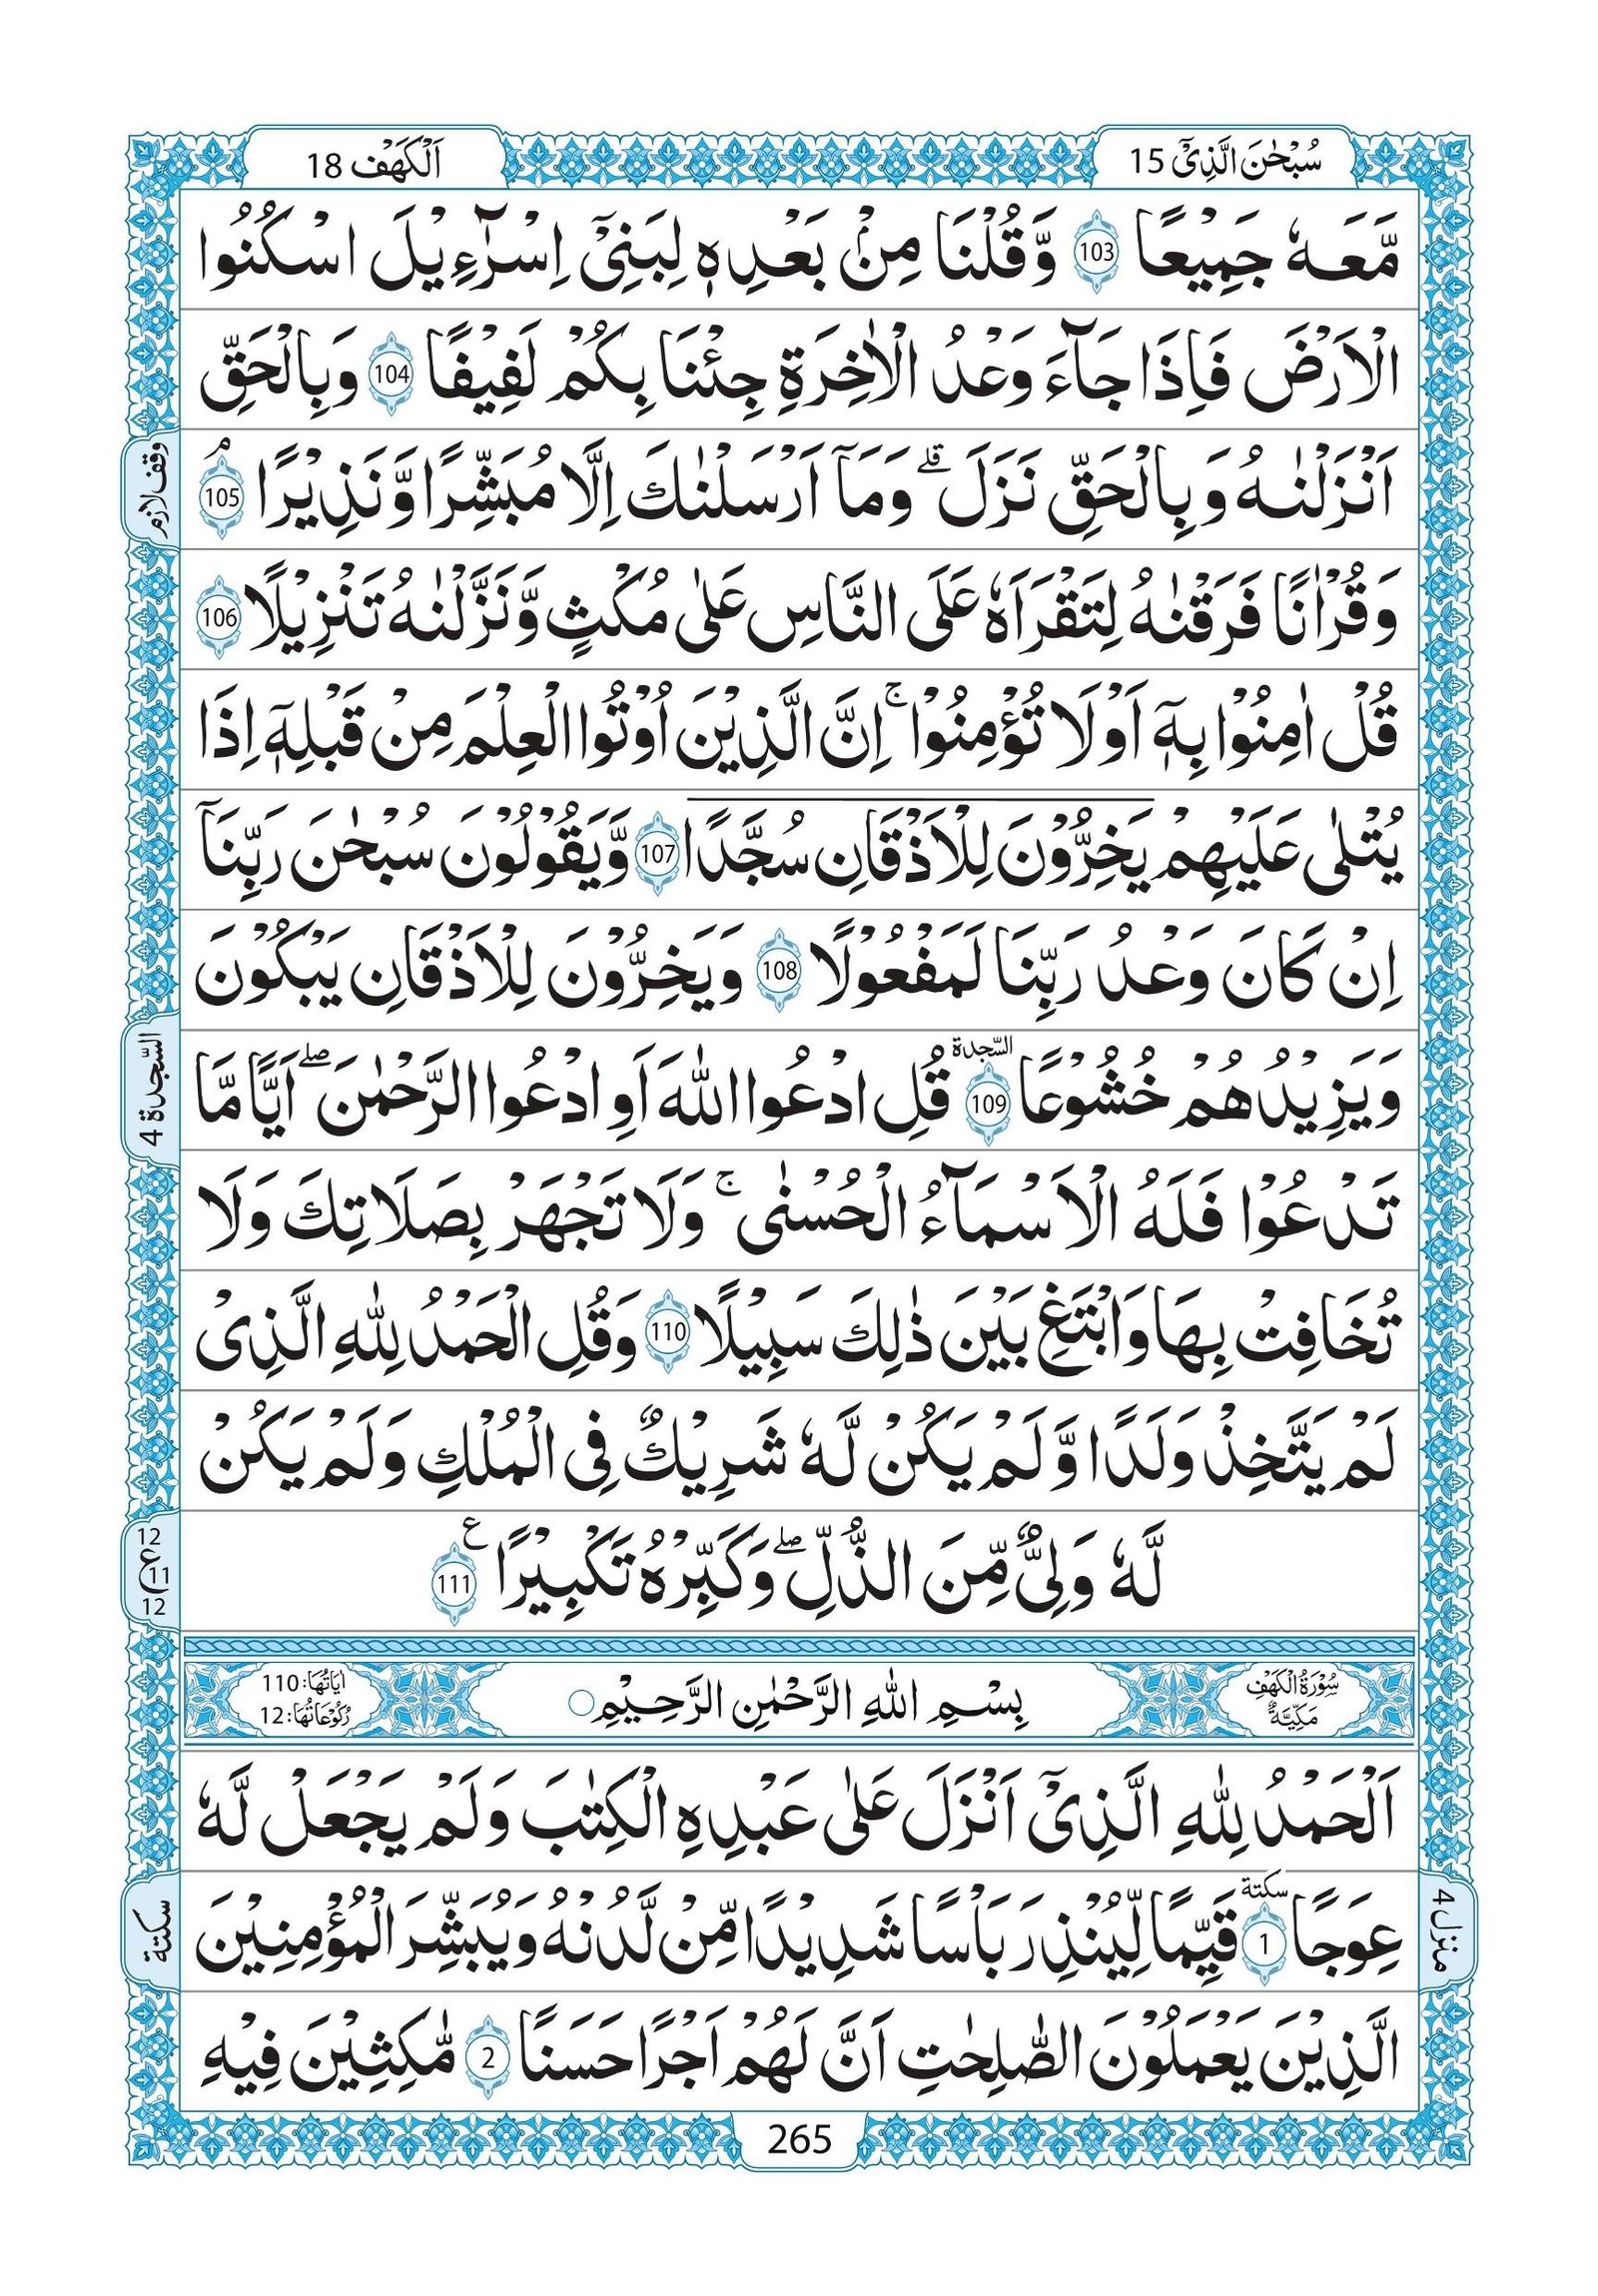 سُبْحٰنَ الَّذِیْۤ 15
اَلْكَهْف 18
مَّعَهٗ جَمِیْعًا 103 وَّقُلْنَا مِنْۢ بَعْدِهٖ لِبَنِیْۤ اِسْرَآءِیْلَ اسْكُنُوا
الْاَرْضَ فَاِذَا جَآءَ وَعْدُ الْاٰخِرَةِ جِئْنَا بِكُمْ لَفِیْفًا 104 وَبِالْحَقِّ
اَنْزَلْنٰهُ وَبِالْحَقِّ نَزَلَ ؕ وَمَاۤ اَرْسَلْنٰكَ اِلَّا مُبَشِّرًا وَّنَذِیْرًا ۘ 105
وقف لازم
وَقُرْاٰنًا فَرَقْنٰهُ لِتَقْرَاَهٗ عَلَی النَّاسِ عَلٰی مُكْثٍ وَّنَزَّلْنٰهُ تَنْزِیْلًا 106
قُلْ اٰمِنُوْا بِهٖۤ اَوْلَا تُؤْمِنُوْا ۚ اِنَّ الَّذِیْنَ اُوْتُوا الْعِلْمَ مِنْ قَبْلِهٖۤ اِذَا
یُتْلٰی عَلَیْهِمْ یَخِرُّوْنَ لِلْاَذْقَانِ سُجَّدًا 107 وَّیَقُوْلُوْنَ سُبْحٰنَ رَبِّنَاۤ
اِنْ كَانَ وَعْدُ رَبِّنَا لَمَفْعُوْلًا 108 وَیَخِرُّوْنَ لِلْاَذْقَانِ یَبْكُوْنَ
وَیَزِیْدُهُمْ خُشُوْعًا السّجدة 109 قُلِ ادْعُوا اللّٰهَ اَوِ ادْعُوا الرَّحْمٰنَ ۖ اَیًّا مَّا
السّجدة 4
تَدْعُوْا فَلَهُ الْاَسْمَآءُ الْحُسْنٰی ۚ وَلَا تَجْهَرْ بِصَلَاتِكَ وَلَا
تُخَافِتْ بِهَا وَابْتَغِ بَیْنَ ذٰلِكَ سَبِیْلًا 110 وَقُلِ الْحَمْدُ لِلّٰهِ الَّذِیْ
لَمْ یَتَّخِذْ وَلَدًا وَّلَمْ یَكُنْ لَّهٗ شَرِیْكٌ فِی الْمُلْكِ وَلَمْ یَكُنْ
لَّهٗ وَلِیٌّ مِّنَ الذُّلِّ ۖ وَكَبِّرْهُ تَكْبِیْرًا ع 111
12
ع 11
12
سُوْرَةُ الْكَهْفِ
مَكِّیَّةٌ
بِسْمِ اللّٰهِ الرَّحْمٰنِ الرَّحِیْمِ
اٰیَاتُهَا: 110
رُكُوْعَاتُهَا: 12
اَلْحَمْدُ لِلّٰهِ الَّذِیْۤ اَنْزَلَ عَلٰی عَبْدِهِ الْكِتٰبَ وَلَمْ یَجْعَلْ لَّهٗ
عِوَجًا سكتة 1 قَیِّمًا لِّیُنْذِرَ بَاْسًا شَدِیْدًا مِّنْ لَّدُنْهُ وَیُبَشِّرَ الْمُؤْمِنِیْنَ
منزل 4
سكتة
الَّذِیْنَ یَعْمَلُوْنَ الصّٰلِحٰتِ اَنَّ لَهُمْ اَجْرًا حَسَنًا 2 مّٰكِثِیْنَ فِیْهِ
265